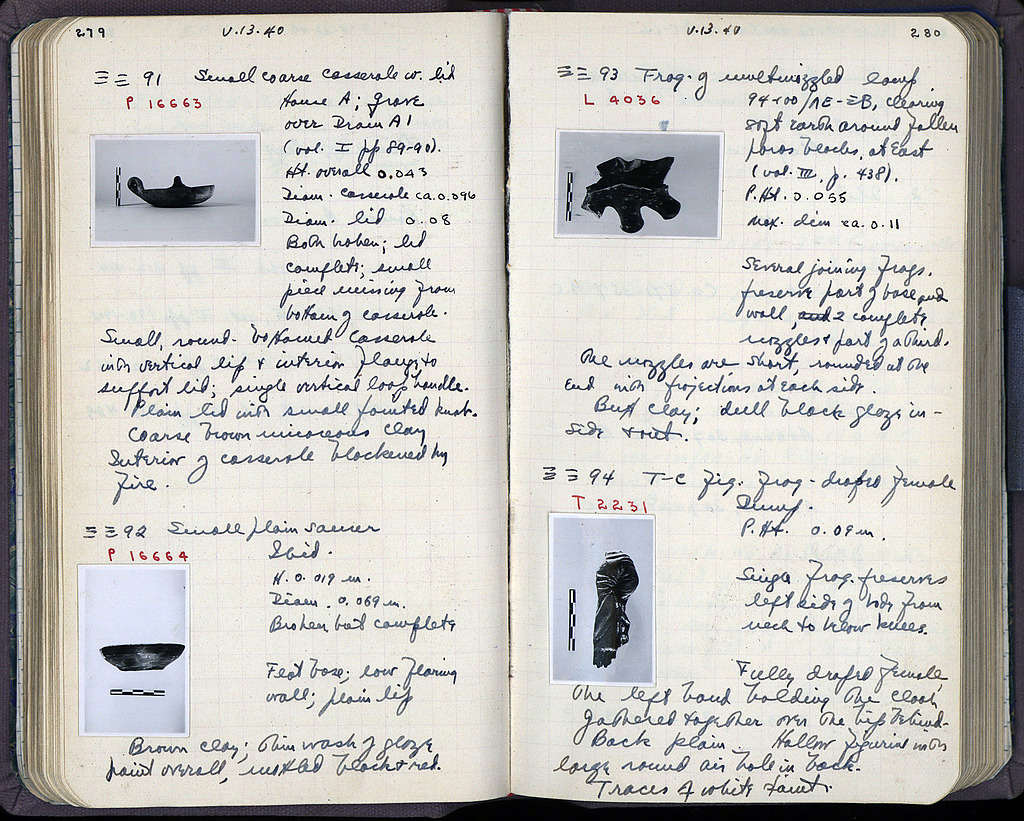 279
V.13.40
ΞΞ 91 Small coarse casserole w. lid
P 16663
House A; grave
over Drain A1
(vol. I pp 89-90).
Ht. overall 0.043
Diam. casserole ca. 0.096
Diam. lid 0.08
Both broken; lid
complete; small
piece missing from
bottom of casserole.
Small, round-bottomed casserole
with vertical lip & interior flange to
support lid; single vertical loop handle.
Plain lid with small pointed knob.
Coarse brown micaceous clay
Interior of casserole blackened by
fire.
ΞΞ 92 Small plain saucer
P 16664
Ibid.
H. 0.019 m.
Diam. 0.069 m.
Broken but complete
Flat base; low flaring
wall; plain lip
Brown clay; thin wash of glaze
paint overall, mottled black & red.
V.13.40
280
ΞΞ 93 Frag. of multinozzled lamp
L 4036
ΛΕ-ΞΒ, clearing
soft earth around fallen
poros blocks, at East
(vol. III, p. 438).
P.Ht. 0.055
Max. dim ca. 0.11
Several joining frags.
preserve part of base and
wall, and 2 complete
nozzles & part of a third.
The nozzles are short, rounded at the
end with projections at each side.
Buff clay; dull black glaze in-
side & out.
ΞΞ 94 T-C fig. frag - draped female
T 2231
Dump.
P.Ht. 0.09 m.
Single frag. preserves
left side of body from
neck to below knees.
Fully draped female,
the left hand holding the cloak
gathered together over the hip behind.
Back plain. Hollow figurine with
large round air hole in back.
Traces of white paint.